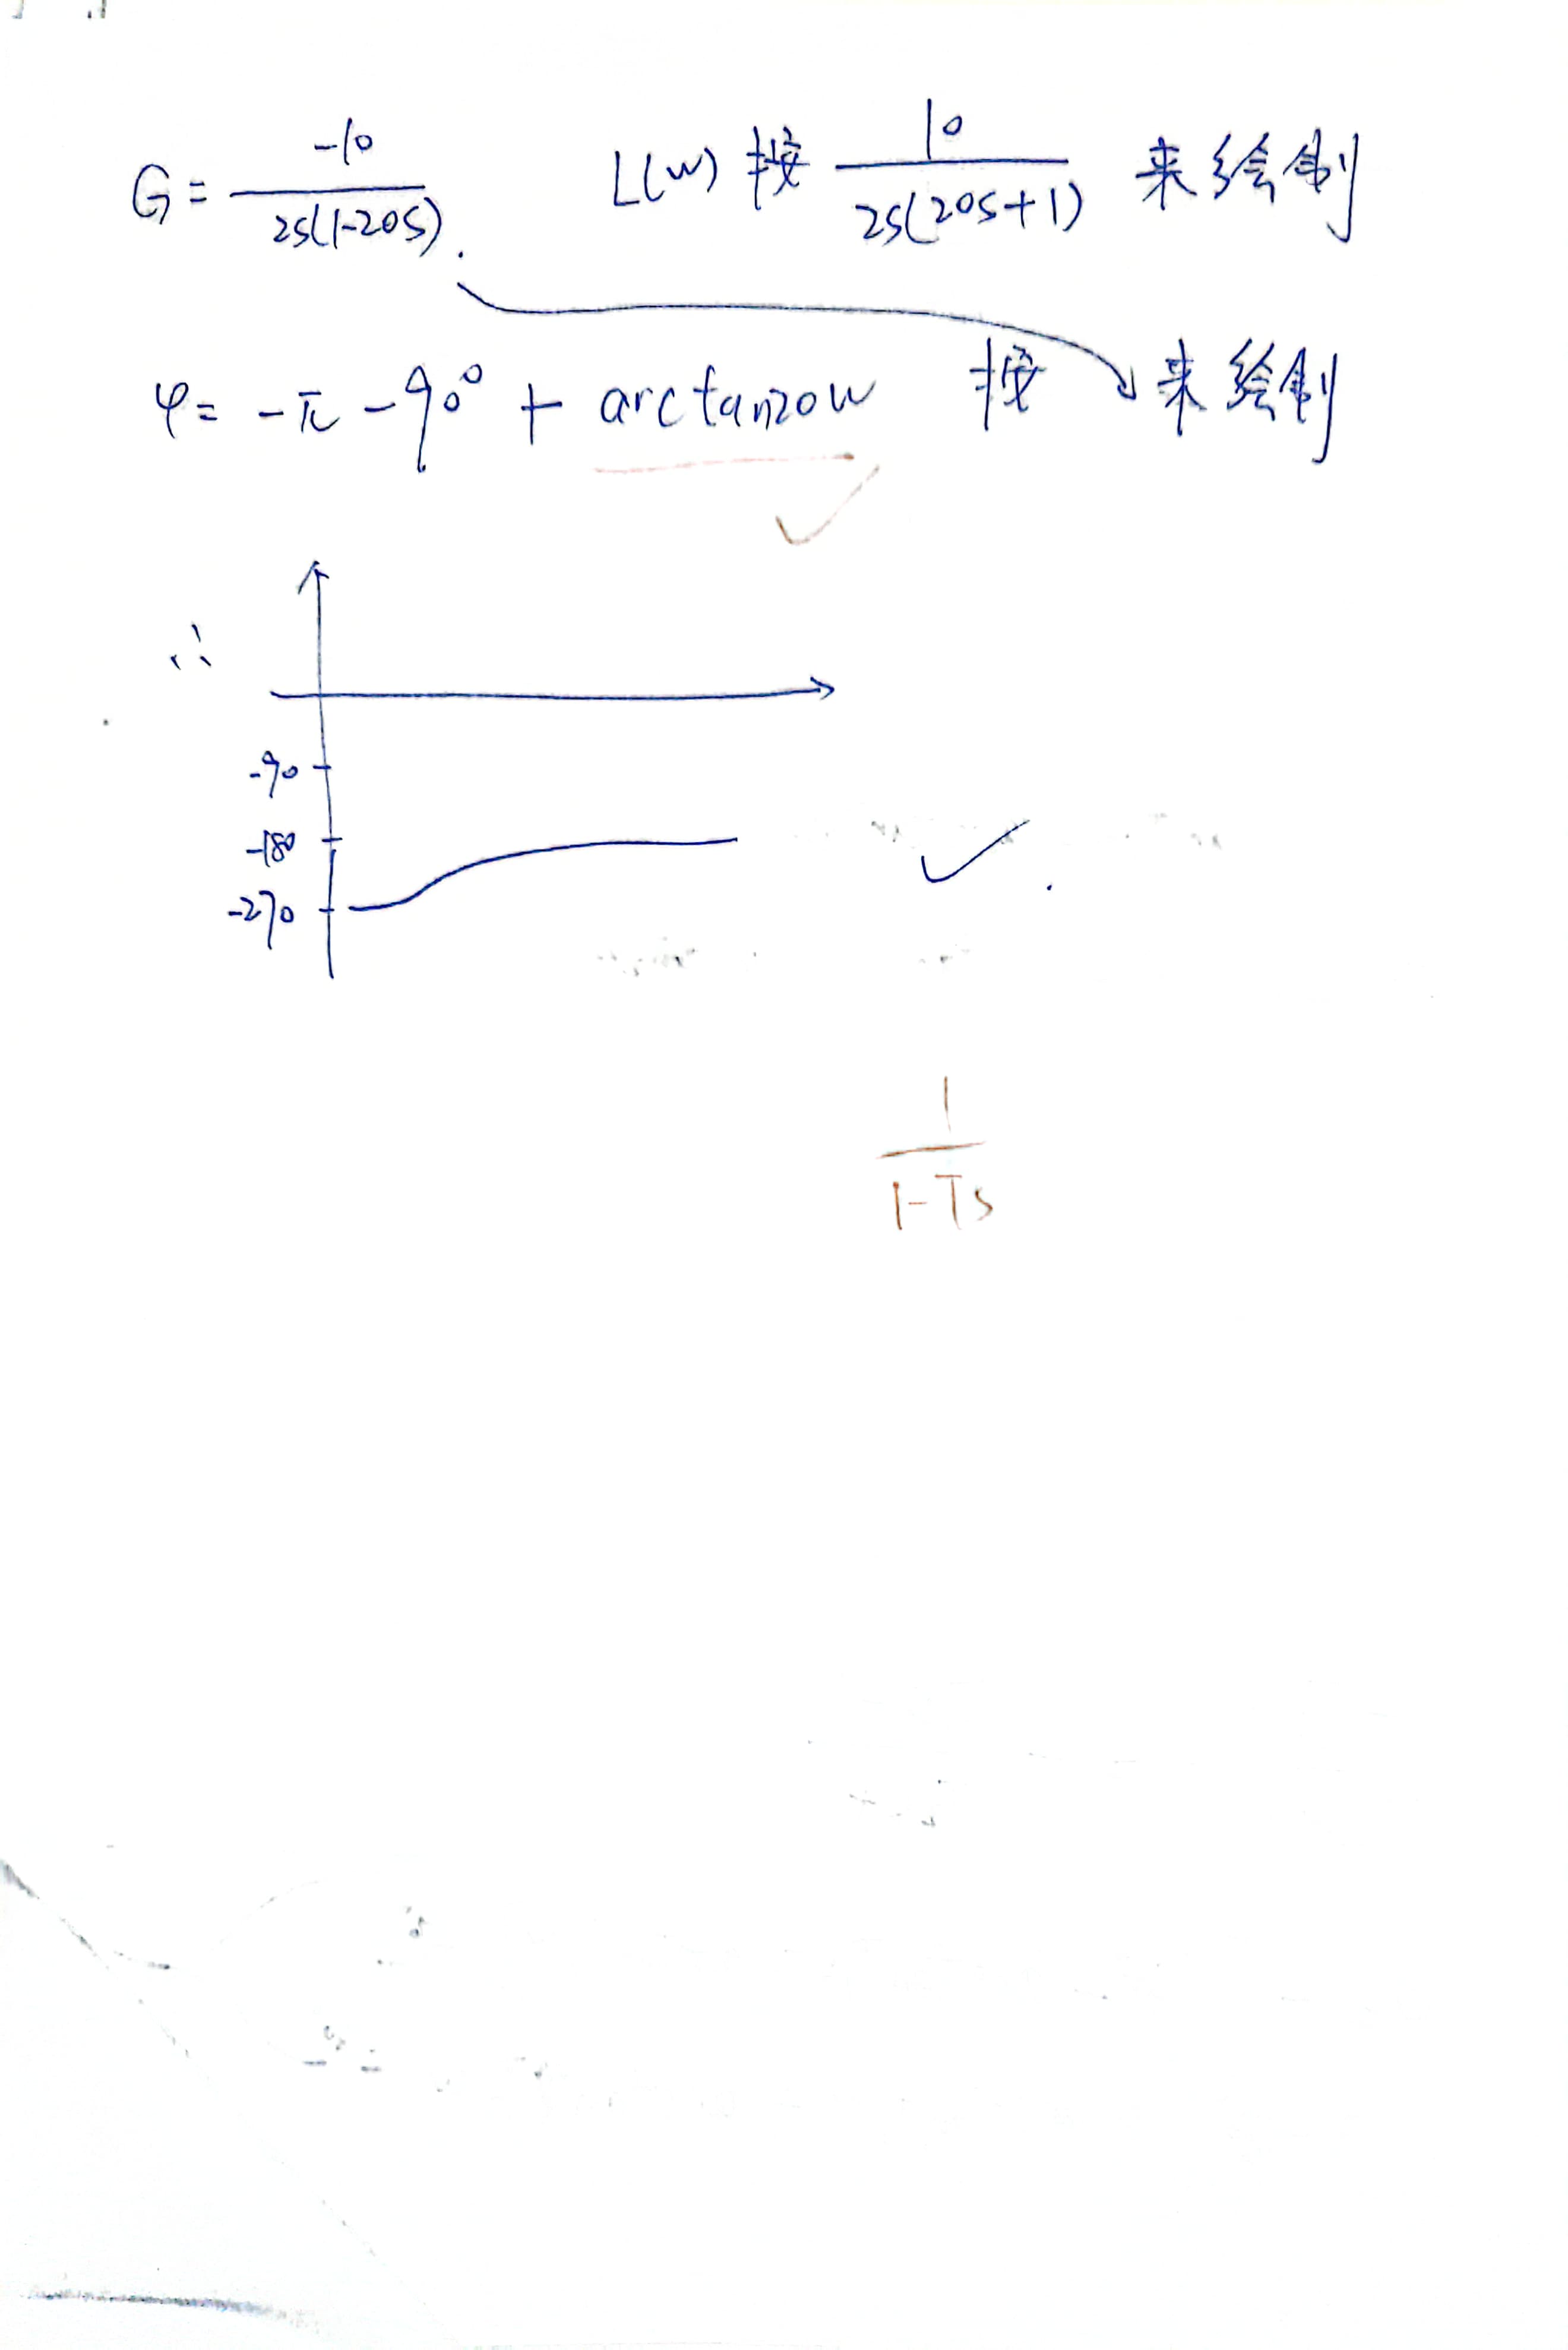 G = -10 / 2s(1-20s) . L(w) 按 10 / 2s(20s+1) 来绘制
φ = -π - 90° + arctan20w 按 来绘制
∴
-90
-180
-270
1 / 1-Ts